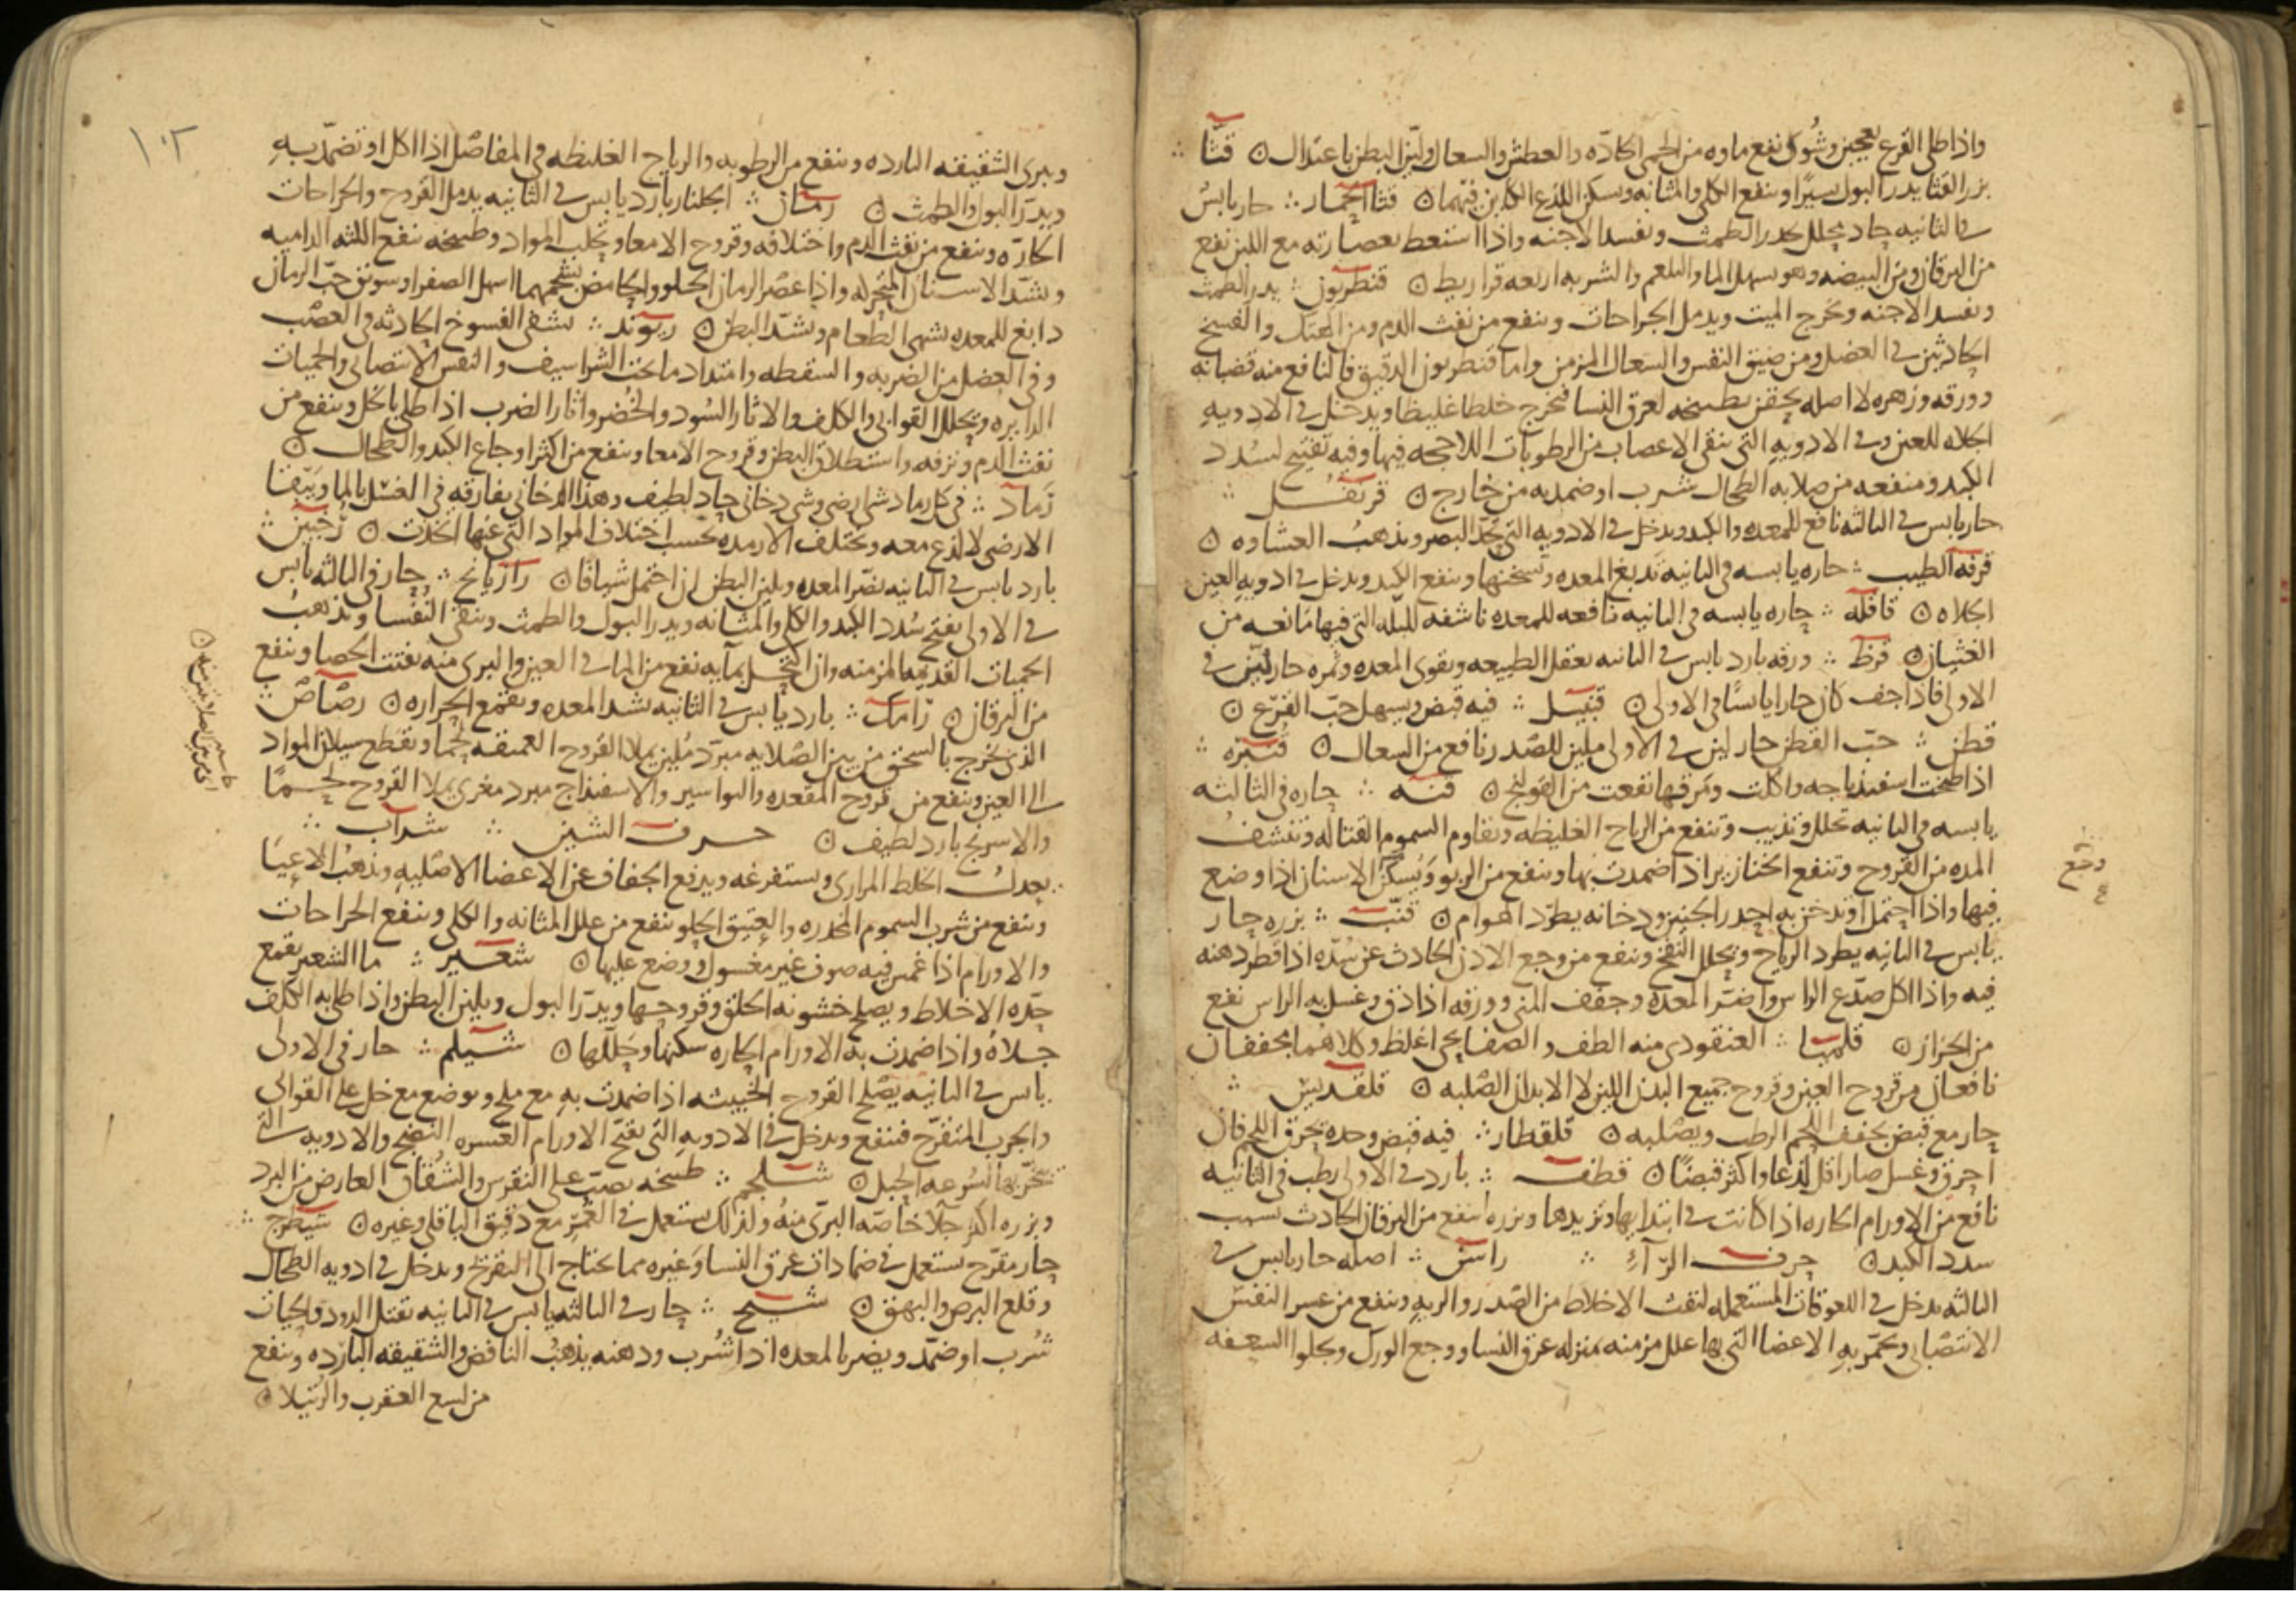 واذا طلى القرع بعجين وشوى نفع ماوه من الحمى الحادّه والعطش والسعال وليّن البطن باعتدال ۞ قثّا ؞
بزر القثا يدر البول يسيرًا وينفع الكلى والمثانه ويسكن اللذع الكاين فيهما ۞ قثا الحمار ؞ حار يابسٌ
فى الثانيه حاد محلل يدر الطمث ويفسد الاجنه واذا استعط بعصارته مع اللبن نفع
من اليرقان ومن البيضه وهو يسهل الما والبلغم والشربه اربعه قراريط ۞ قنطريون ؞ يدر الطمث
ويفسد الاجنه ويخرج الميت ويدمل الجراحات وينفع من نفث الدم ومن الهتك والفسخ
الحادثين فى العضل ومن ضيق النفس والسعال المزمن واما قنطريون الدقيق فالنافع منه قضبانه
وورقه وزهره لا اصله يحقن بطبيخه لعرق النسا فيخرج خلطا غليظا ويدخل فى الادويه
الجلاه للعين وفى الادويه التى تنقى الاعصاب من الرطوبات اللاحجه فيها وفيه تفتيح لسدد
الكبد ومنفعه من صلابه الطحال شرب او ضمد به من خارج ۞ قرنفل ؞
حار يابس فى الثالثه نافع للمعده والكبد ويدخل فى الادويه التى تحدّ البصر ويذهبُ الغشاوه ۞
قرفه الطيب ؞ حاره يابسه فى الثانيه تدبغ المعده وتسخنها وينفع الكبد ويدخل فى ادويه العين
الجلاه ۞ قاقله ؞ حاره يابسه فى الثانيه نافعه للمعده ناشفه للبله التى فيها مانعه من
الغثيان ۞ قرظ ؞ ورقه بارد يابس فى الثانيه يعقل الطبيعه ويقوى المعده وثمره حار ليّن فى
الاولى فاذا جف كان حارا يابسًا فى الاولى ۞ قنبيل ؞ فيه قبض ويسهل حبّ القرع ۞
قطن ؞ حبّ القطن حار لين فى الاولى ملين للصّدر نافع من السعال ۞ قنبره ؞
اذا طبخت اسفيذباجه واكلت ومرقها نفعت من القولنج ۞ قنه ؞ حاره فى الثالثه
يابسه فى الثانيه تحلل وتذيب وتنفع من الرياح الغليظه وتقاوم السموم القتاله وتنشفُ
المده من القروح وتنفع الخنازير اذا ضمدت بها وينفع من الربو ويُسكّن الاسنان اذا وضع
وجع
فيها واذا احتمل او تدخن به احدر الجنين ودخانه يطرد الهوام ۞ قنّب ؞ بزره حار
يابس فى الثانيه يطرد الرياح ويحلل النفخ وينفع من وجع الاذن الحادث عن سُدّه اذا قطر دهنه
فيه واذا اكل صدّع الراس واضرّ المعده وجفف المنى وورقه اذا دق وغسل به الراس نفع
من الحزاز ۞ قلميا ؞ العنقودى منه الطف والصفايحى اغلظ وكلاهما يجففان
نافعان من قروح العين وقروح جميع البدن اللين لا الابدان الصّلبه ۞ قلقديس ؞
حار مع قبض يجفف اللحم الرطب ويصّلبه ۞ قلقطار ؞ فيه قبض وحده يحرق اللحم فان
احرق وغسل صار اقل لذعا واكثر قبضًا ۞ قطف ؞ بارد فى الاولى رطب فى الثانيه
نافع من الاورام الحاره اذا كانت فى ابتدايها وتزيدها وبزره ينفع من اليرقان الحادث بسبب
سدد الكبد ۞ حرف الرّآء ؞ راسن ؞ اصله حار يابس فى
الثالثه يدخل فى اللعوقات المستعمله لنفث الاخلاط من الصّدر والريه وينفع من عسر النفس
الانتصابى ويحمّر به الاعضا التى بها علل مزمنه بمنزله عرق النسا ووجع الورك ويجلوا السعفه
١٠٢
ويبرى الشقيقه البارده وينفع من الرطوبه والرياح الغليظه فى المفاصل اذا اكل او تضمّد به
ويدرّ البول والطمث ۞ رمّان ؞ الجلنار بارد يابس فى الثانيه يدمل القروح والجراحات
الحارّه وينفع من نفث الدم واختلافه وقروح الامعا وتحلب المواد وطبيخه ينفع اللثه الداميه
ويشدّ الاسنان المتحركه واذا عصر الرمان الحلو والحامض بشحمهما اسهل الصفرا وسويق حبّ الرمان
دابغ للمعده يشهى الطعام ويشدّ البطن ۞ ريوند ؞ يشفى الفسوخ الحادثه فى العصب
وفى العضل من الضربه والسقطه وامتداد ما تحت الشراسيف والنفس الانتصابى والحميات
الدايره ويحلل القوابى والكلف والاثار السُود والخُضر واثار الضرب اذا طلى بالخل وينفع من
نفث الدم ونزفه واستطلاق البطن وقروح الامعا وينفع من اكثر اوجاع الكبد والطحال ۞
رَماد ؞ فى كل رماد شى ارضى وشى دخانى حاد لطيف وهذا الدخانى يفارقه فى الغسل بالما ويبقا
الارضى لا لذع معه ويختلف الارمده بحسب اختلاف المواد التى عنها اتخذت ۞ رجبين ؞
بارد يابس فى الثانيه يضرّ المعده ويلين البطن ان احتمل شيافًا ۞ رازيانج ؞ حار فى الثالثه يابس
فى الاولى يفتح سُدد الكبد والكلى والمثانه ويدر البول والطمث وينقى النُفسا ويذهبُ
الحميات القديمه المزمنه وان اكتحل بمآيه نفع من الما فى العين والبرى منه يفتت الحصا وينفع
من اليرقان ۞ رامك ؞ بارد يابس فى الثانيه يشد المعده ويقمع الحراره ۞ رصاص ؞
الذى يخرج بالسحق من بين الصّلايه مبرّد مُلين يملا القروح العميقه لحما ويقطع سيلان المواد
الى العين وينفع من قروح المقعده والبواسير والاسفيذاج مبرد مغرى يملا القروح لحمًا
والاسرنج بارد لطيف ۞ حرف الشين ؞ شراب ؞
يعدل الخلط المرارى ويستفرغه ويدفع الجفاف عن الاعضا الاصليه ويذهبُ الاعيا
وينفع من شرب السموم المخدره والعتيق الحلو ينفع من علل المثانه والكلى وينفع الجراحات
والاورام اذا غمس فيه صوف غير مغسول ووضع عليها ۞ شعير ؞ ما الشعير يقمع
حدّه الاخلاط ويصلح خشونه الحلق وقروحها ويدرّ البول ويلين البطن واذا طلى به الكلف
جلاهُ واذا ضمدت به الاورام الحاره سكنها وحللها ۞ شيلم ؞ حار فى الاولى
يابس فى الثانيه يصلح القروح الخبيثه اذا ضمدت به مع ملح ويوضع مع خل على القوابى
والجرب المتقرّح فينفع ويدخل فى الادويه التى تفتح الاورام العسره النضج والادويه التى
يتبخّر بها لسُرعه الحبل ۞ شلجم ؞ طبيخه يصبّ على النقرس والشقاق العارض من البرد
وبزره اكثر جلآ خاصّه البرّى منهُ ولذلك يستعمل فى الغمر مع دقيق الباقلى وغيره ۞ شيطرج ؞
حار مقرّح يستعمل فى ضمادات عرق النسا وغيره مما يحتاج الى التقريح ويدخل فى ادويه الطحال
وقلع البرص والبهق ۞ شيح ؞ حار فى الثالثه يابس فى الثانيه يقتل الدود والحيات
شُرب او ضمّد ويضر بالمعده اذا شُرب ودهنه يذهبُ النافض والشقيقه البارده وينفع
من لسع العقرب والرتيلا ۞